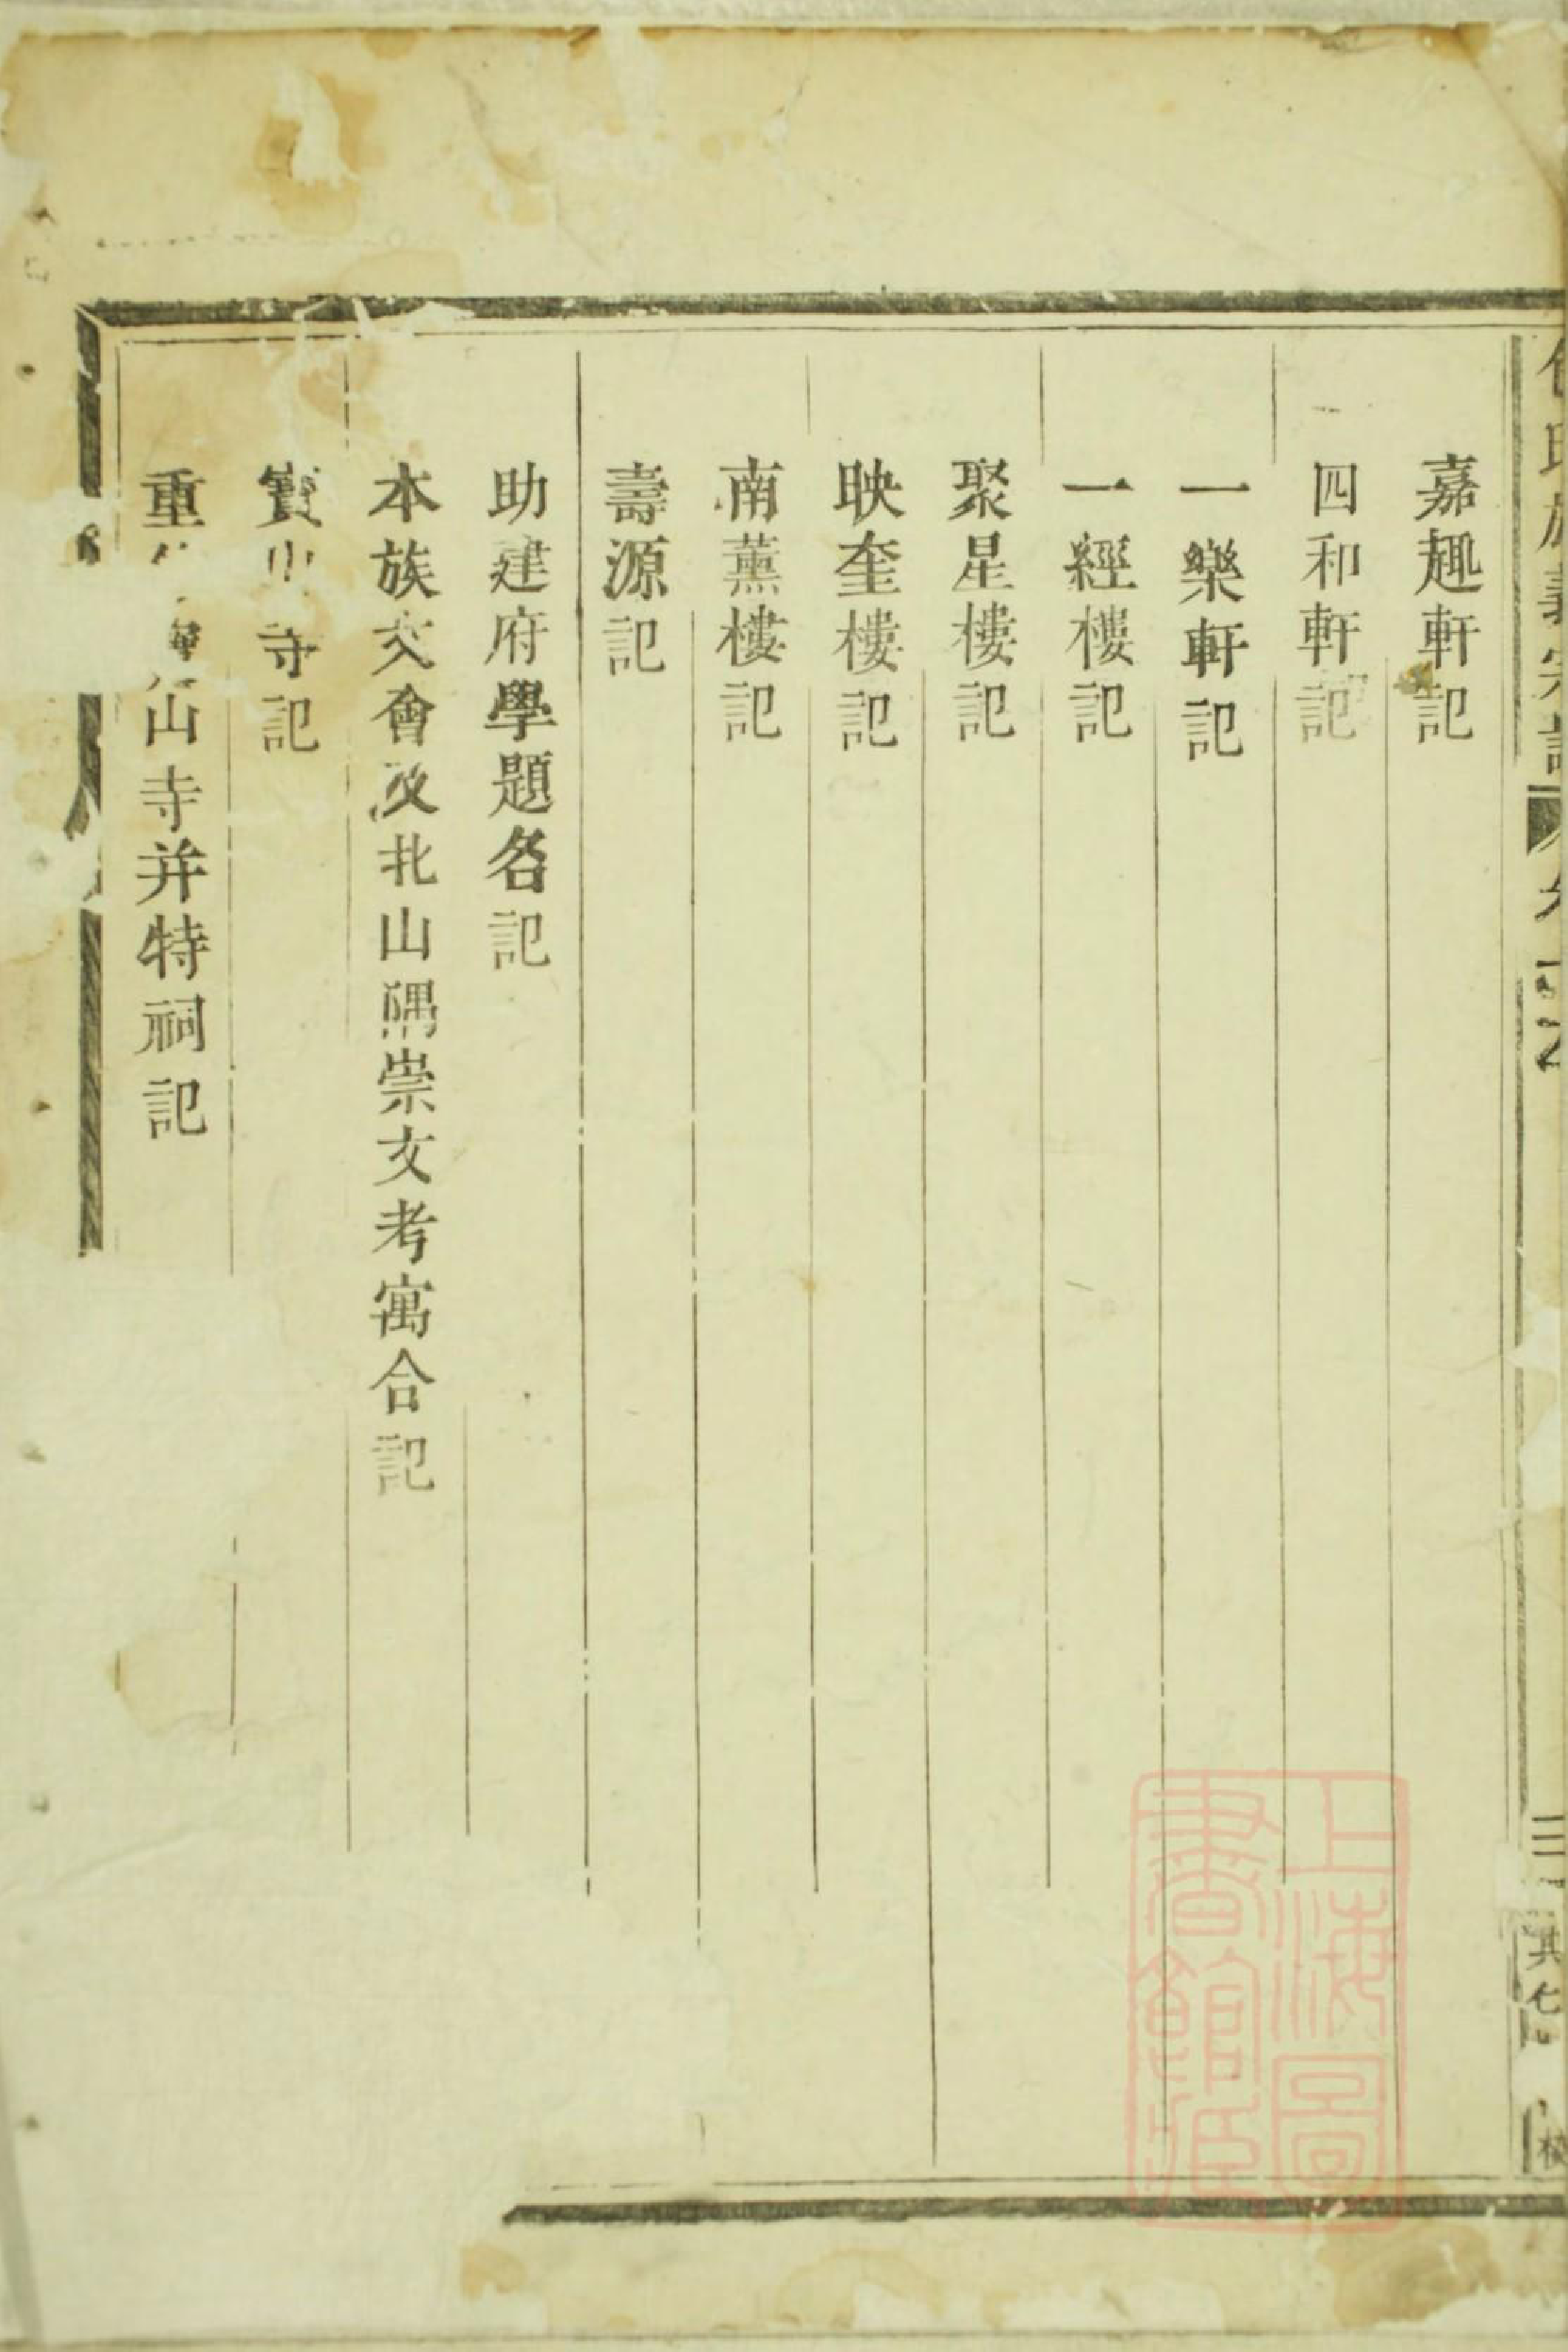 嘉趣軒記
四和軒記
一樂軒記
一經樓記
聚星樓記
映奎樓記
南薰樓記
壽源記
助建府學題名記
本族文會及北山隅崇文考寓合記
寶山寺記
重山寺并特祠記
上海圖
書館藏